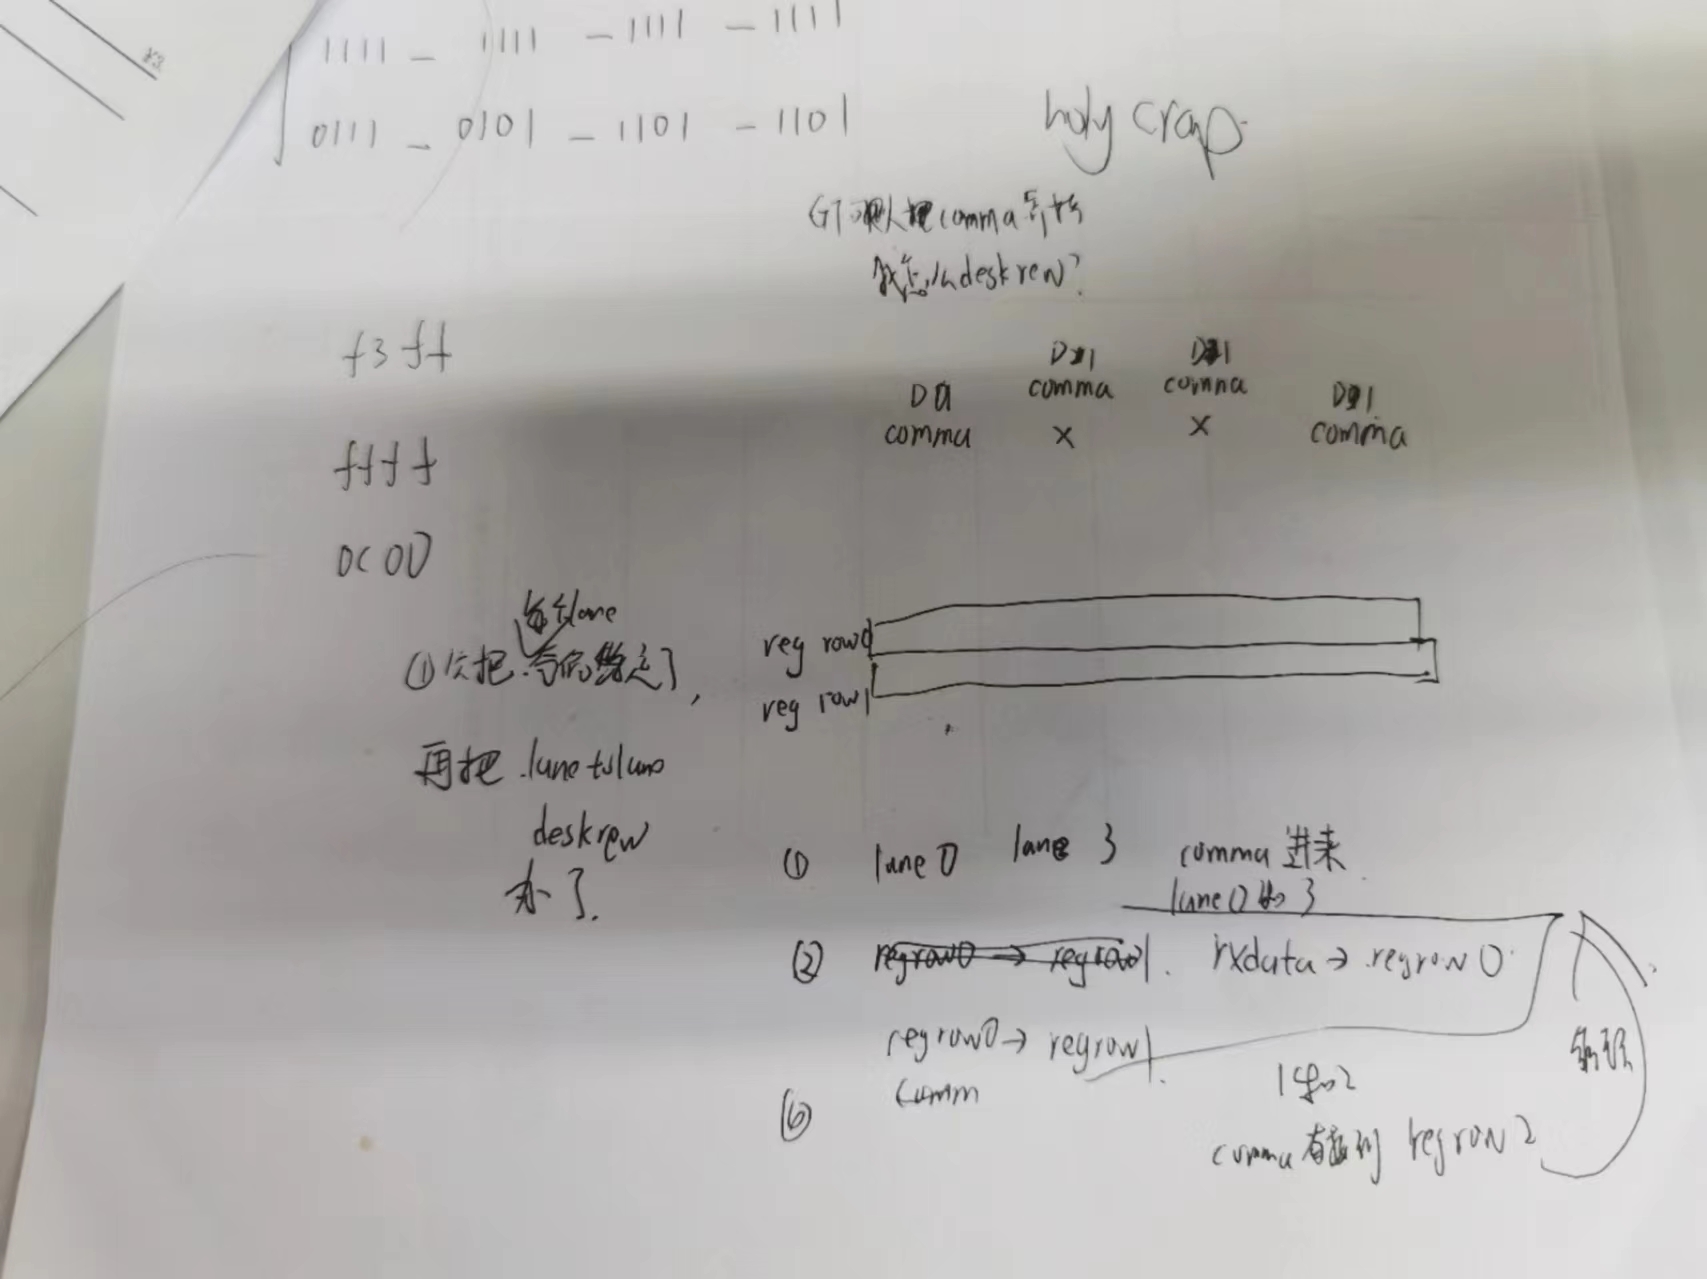 1111 _ 1111 - 1111 - 1111
0111 _ 0101 - 1101 - 1101
holy crap
GT默认把comma
我怎么deskew?
f3ff
ffff
0c00
D1 D1
D0 comma comma D1
comma X X comma
每个lane
①公把
再把 lane to lane
deskew
办了.
reg row0
reg row1
① lane0 lane 3 comma 进来
lane0 3
② regrow0 → regrow1. rxdata → regrow0
regrow0 → regrow1
comm
⑥
1 2
comma regrow2